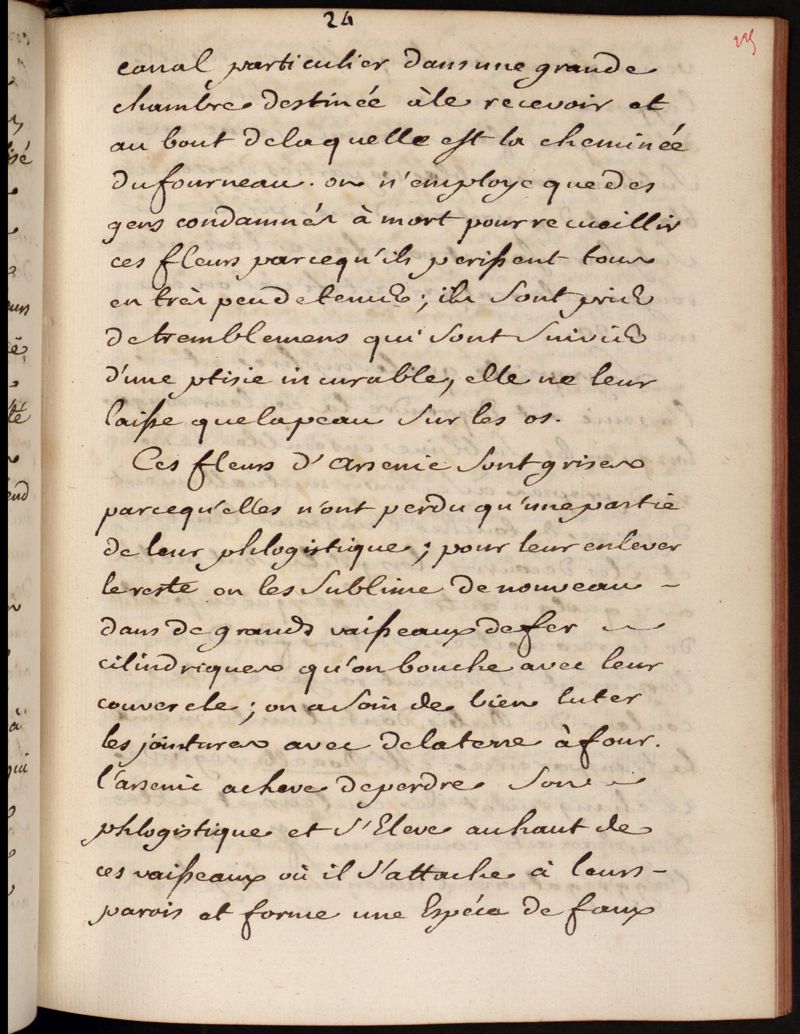 24
canal particulier dans une grande
chambre destinée à le recevoir et
au bout de laquelle est la cheminée
du fourneau. on n'employe que des
gens condamnés à mort pour recueillir
ces fleurs parcequ'ils perissent tous
en très peu de tems; ils sont pris
de tremblemens qui sont suivis
d'une ptisie incurable, elle ne leur
laisse que la peau sur les os.
Ces fleurs d'Arsenic sont grises
parcequ'elles n'ont perdu qu'une partie
de leur phlogistique; pour leur enlever
le reste on les sublime de nouveau -
dans de grands vaisseaux de fer
cilindriques qu'on bouche avec leur
couvercle; on a soin de bien luter
les jointures avec de la terre à four.
l'arsenic acheve de perdre son
phlogistique et s'Eleve au haut de
ces vaisseaux où il s'attache à leurs -
parois et forme une Espéce de faux